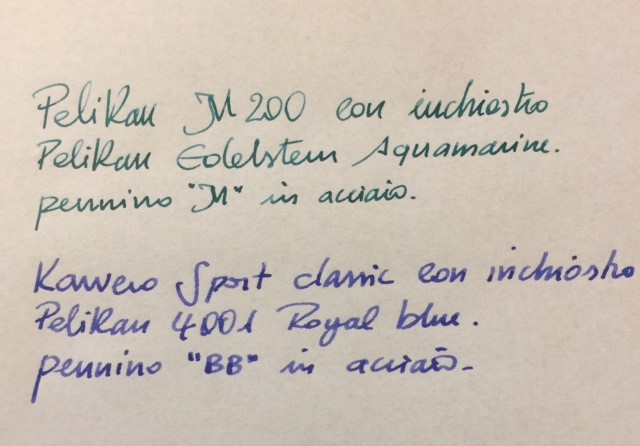 Pelikan M200 con inchiostro
Pelikan Edelstein Aquamarine.
pennino "M" in acciaio.
Kaweco Sport classic con inchiostro
Pelikan 4001 Royal blue.
pennino "BB" in acciaio.